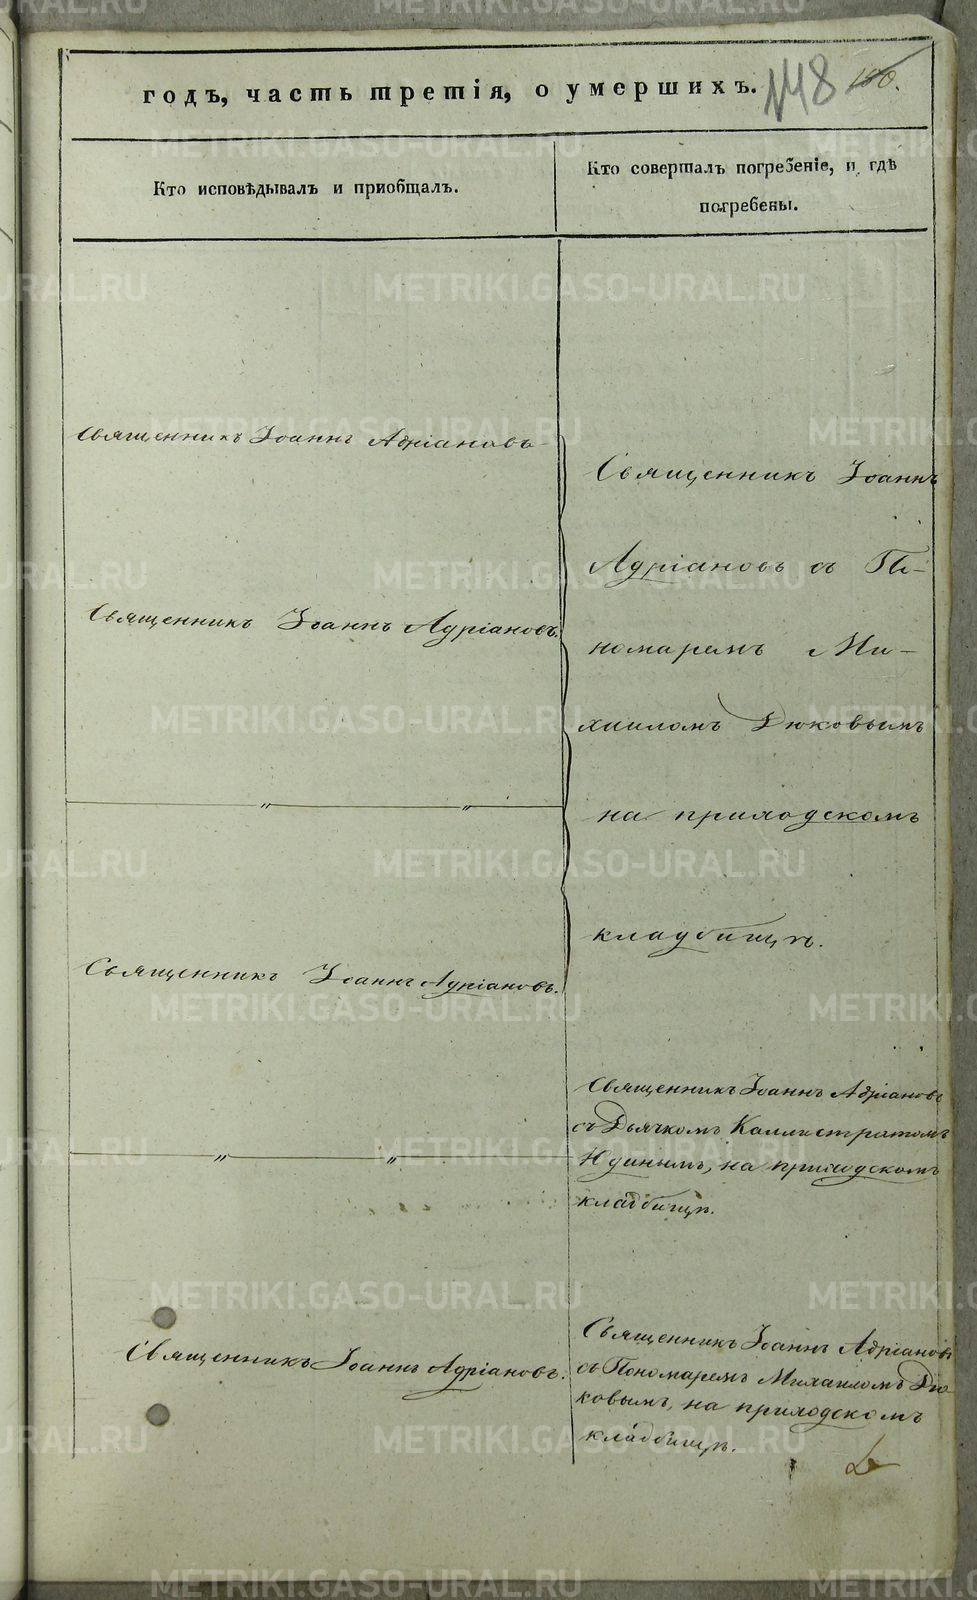 годъ, часть третія, о умершихъ.
148 150.
Кто исповѣдывалъ и приобщалъ.
Кто совершалъ погребеніе, и гдѣ
погребены.
Священникъ Іоаннъ Адріановъ
Священникъ Іоаннъ Адріановъ.
Священникъ Іоаннъ Адріановъ.
Священникъ Іоаннъ
Адріановъ съ По-
номаремъ Ми-
хаиломъ Дюковымъ
на приходскомъ
кладбищѣ.
Священникъ Іоаннъ Адріановъ
съ Дьячкомъ Каллистратомъ
Юдинымъ, на приходскомъ
кладбищѣ.
Священникъ Іоаннъ Адріановъ.
Священникъ Іоаннъ Адріановъ
съ Пономаремъ Михаиломъ Дю
ковымъ, на приходскомъ
кладбищѣ.
METRIKI.GASO-URAL.RU